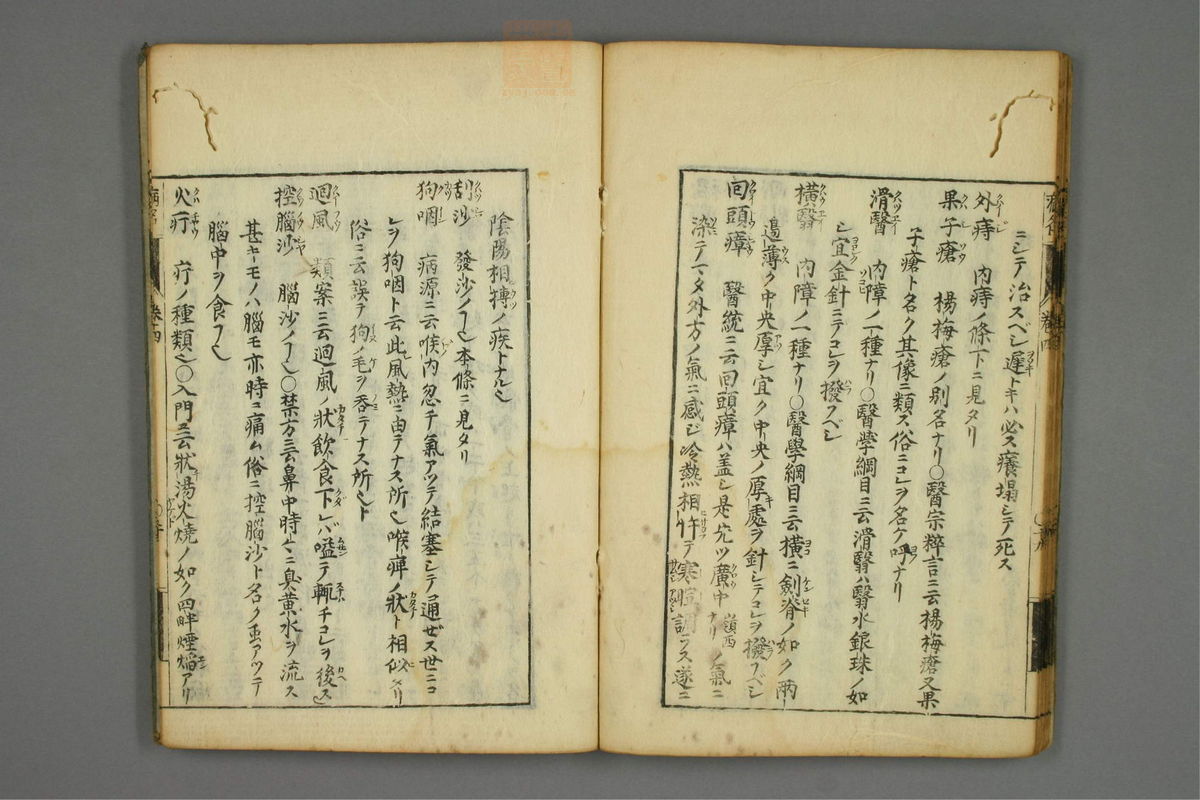 ニシテ治スベシ遅トキハ必ス癢塌シテ死ス
外痔 内痔ノ條下ニ見タリ
果子瘡 楊梅瘡ノ別名ナリ〇醫宗粹言ニ云楊梅瘡又果
子瘡ト名ク其像ニ類ス俗ニコレヲ名ケ呼ナリ
滑翳 内障ノ一種ナリ〇醫學綱目ニ云滑翳ハ翳水銀珠ノ如
シ宜金針ニテコレヲ撥スベシ
横翳 内障ノ一種ナリ〇醫學綱目ニ云横ニ劍脊ノ如ク兩
邉薄ク中央厚シ宜ク中央ノ厚處ヲ針シテコレヲ撥スベシ
回頭瘴 醫統ニ云回頭瘴ハ盖シ是先ツ廣中嶺西ナリノ氣ニ
染テマタ外方ノ氣ニ感ジ冷熱相忤テ寒暄調ラス遂ニ
陰陽相搏ノ疾トナル也
刮沙 發沙ノ也本條ニ見タリ
狗咽 病源ニ云喉内忽チ氣アツテ結塞シテ通ゼス世ニコ
レヲ狗咽ト云此風熱ニ由テナス所也喉痺ノ狀ト相似タリ
俗ニ云誤テ狗ノ毛ヲ呑テナス所也ト
廻風 類案ニ云廻風ノ狀飲食下レバ嗌テ輙チコレヲ後ス
控腦沙 腦沙ノ也〇禁方ニ云鼻中時々ニ臭黄水ヲ流ス
甚キモノハ腦モ亦時ニ痛ム俗ニ控腦沙ト名ク虫アツテ
腦中ヲ食フ也
火疔 疔ノ種類也〇入門ニ云狀湯火燒ノ如ク四畔煙焰アリ